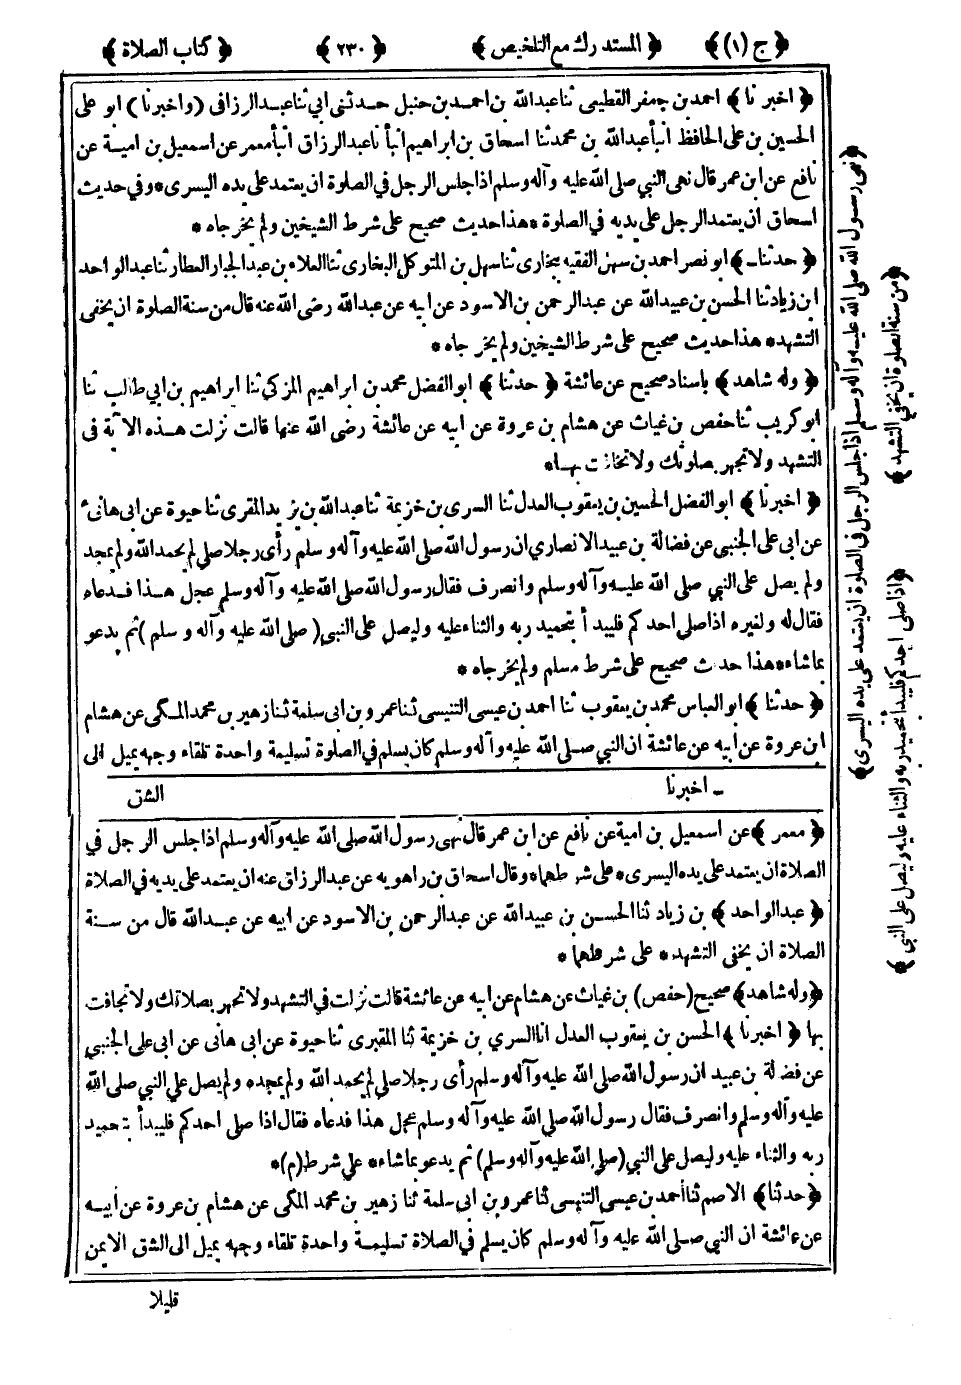 ﴿ ج (١) ﴾ ﴿ المستدرك مع التلخيص ﴾ ﴿ ٢٣٠ ﴾ ﴿ كتاب الصلاة ﴾
﴿ اخبرنا ﴾ احمد بن جعفر القطيعى ثنا عبد الله بن احمد بن حنبل حدثنى ابي ثنا عبد الرزاق (واخبرنا) ابو على
الحسين بن على الحافظ انبأ عبد الله بن محمد ثنا اسحاق بن ابراهيم انبأ نا عبد الرزاق انبأ معمر عن اسمعيل بن امية عن
نافع عن ابن عمر قال نهى النبي صلى الله عليه وآله وسلم اذا جلس الرجل في الصلوة ان يعتمد على يده اليسرى * وفي حديث
اسحاق ان يعتمد الرجل على يديه في الصلوة * هذا حديث صحيح على شرط الشيخين ولم يخرجاه *
﴿ حدثنا ﴾ ابو نصر احمد بن سهل الفقيه ببخارى ثنا سهل بن المتوكل البخارى ثنا العلاء بن عبد الجبار العطار ثنا عبد الواحد
ابن زياد ثنا الحسن بن عبيد الله عن عبد الرحمن بن الاسود عن ابيه عن عبد الله رضى الله عنه قال من سنة الصلوة ان يخفى
التشهد * هذا حديث صحيح على شرط الشيخين ولم يخرجاه *
﴿ وله شاهد ﴾ باسناد صحيح عن عائشة ﴿ حدثنا ﴾ ابو الفضل محمد بن ابراهيم المزكى ثنا ابراهيم بن ابي طالب ثنا
ابو كريب ثنا حفص بن غياث عن هشام بن عروة عن ابيه عن عائشة رضى الله عنها قالت نزلت هذه الآية فى
التشهد ولا تجهر بصلوتك ولا تخافت بها *
﴿ اخبرنا ﴾ ابو الفضل الحسين بن يعقوب العدل ثنا السرى بن خزيمة ثنا عبد الله بن يزيد المقرى ثنا حيوة عن ابى هانىء
عن ابى على الجنبي عن فضالة بن عبيد الانصاري ان رسول الله صلى الله عليه وآله وسلم رأى رجلا صلى لم يحمد الله ولم يمجد
ولم يصل على النبي صلى الله عليه وآله وسلم وانصرف فقال رسول الله صلى الله عليه وآله وسلم عجل هذا فدعاه
فقال له ولغيره اذا صلى احدكم فليبدأ بتحميد ربه والثناء عليه وليصل على النبي (صلى الله عليه وآله وسلم) ثم يدعو
بما شاء * هذا حديث صحيح على شرط مسلم ولم يخرجاه *
﴿ حدثنا ﴾ ابو العباس محمد بن يعقوب ثنا احمد بن عيسى التنيسى ثنا عمرو بن ابى سلمة ثنا زهير بن محمد المكى عن هشام
ابن عروة عن ابيه عن عائشة ان النبي صلى الله عليه وآله وسلم كان يسلم في الصلوة تسليمة واحدة تلقاء وجهه يميل الى
ـ اخبرنا الشق
﴿ معمر ﴾ عن اسمعيل بن امية عن نافع عن ابن عمر قال نهى رسول الله صلى الله عليه وآله وسلم اذا جلس الرجل في
الصلاة ان يعتمد على يده اليسرى * على شرطهما * وقال اسحاق بن راهويه عن عبد الرزاق عنه ان يعتمد على يديه في الصلاة
﴿ عبد الواحد ﴾ بن زياد ثنا الحسن بن عبيد الله عن عبد الرحمن بن الاسود عن ابيه عن عبد الله قال من سنة
الصلاة ان يخفى التشهد * على شرطهما *
﴿ وله شاهد ﴾ صحيح (حفص) بن غياث عن هشام عن ابيه عن عائشة قالت نزلت في التشهد ولا تجهر بصلاتك ولا تخافت
بها ﴿ اخبرنا ﴾ الحسن بن يعقوب العدل انا السري بن خزيمة ثنا المقبرى ثنا حيوة عن ابى هانى عن ابى على الجنبي
عن فضالة بن عبيد ان رسول الله صلى الله عليه وآله وسلم رأى رجلا صلى لم يحمد الله ولم يمجده ولم يصل على النبي صلى الله
عليه وآله وسلم وانصرف فقال رسول الله صلى الله عليه وآله وسلم عجل هذا فدعاه فقال اذا صلى احدكم فليبدأ بتحميد
ربه والثناء عليه وليصل على النبي (صلى الله عليه وآله وسلم) ثم يدعو بما شاء * على شرط (م) *
﴿ حدثنا ﴾ الاصم ثنا أحمد بن عيسى التنيسى ثنا عمرو بن ابى سلمة ثنا زهير بن محمد المكى عن هشام بن عروة عن أبيه
عن عائشة ان النبي صلى الله عليه وآله وسلم كان يسلم في الصلاة تسليمة واحدة تلقاء وجهه يميل الى الشق الايمن
قليلا
﴿ نهى رسول الله صلى الله عليه وآله وسلم اذا جلس الرجل في الصلوة ان يعتمد على يده اليسرى ﴾
﴿ من سنة الصلوة ان يخفي التشهد ﴾
﴿ اذا صلى احدكم فليبدأ بتحميد ربه والثناء عليه وليصل على النبي ﴾